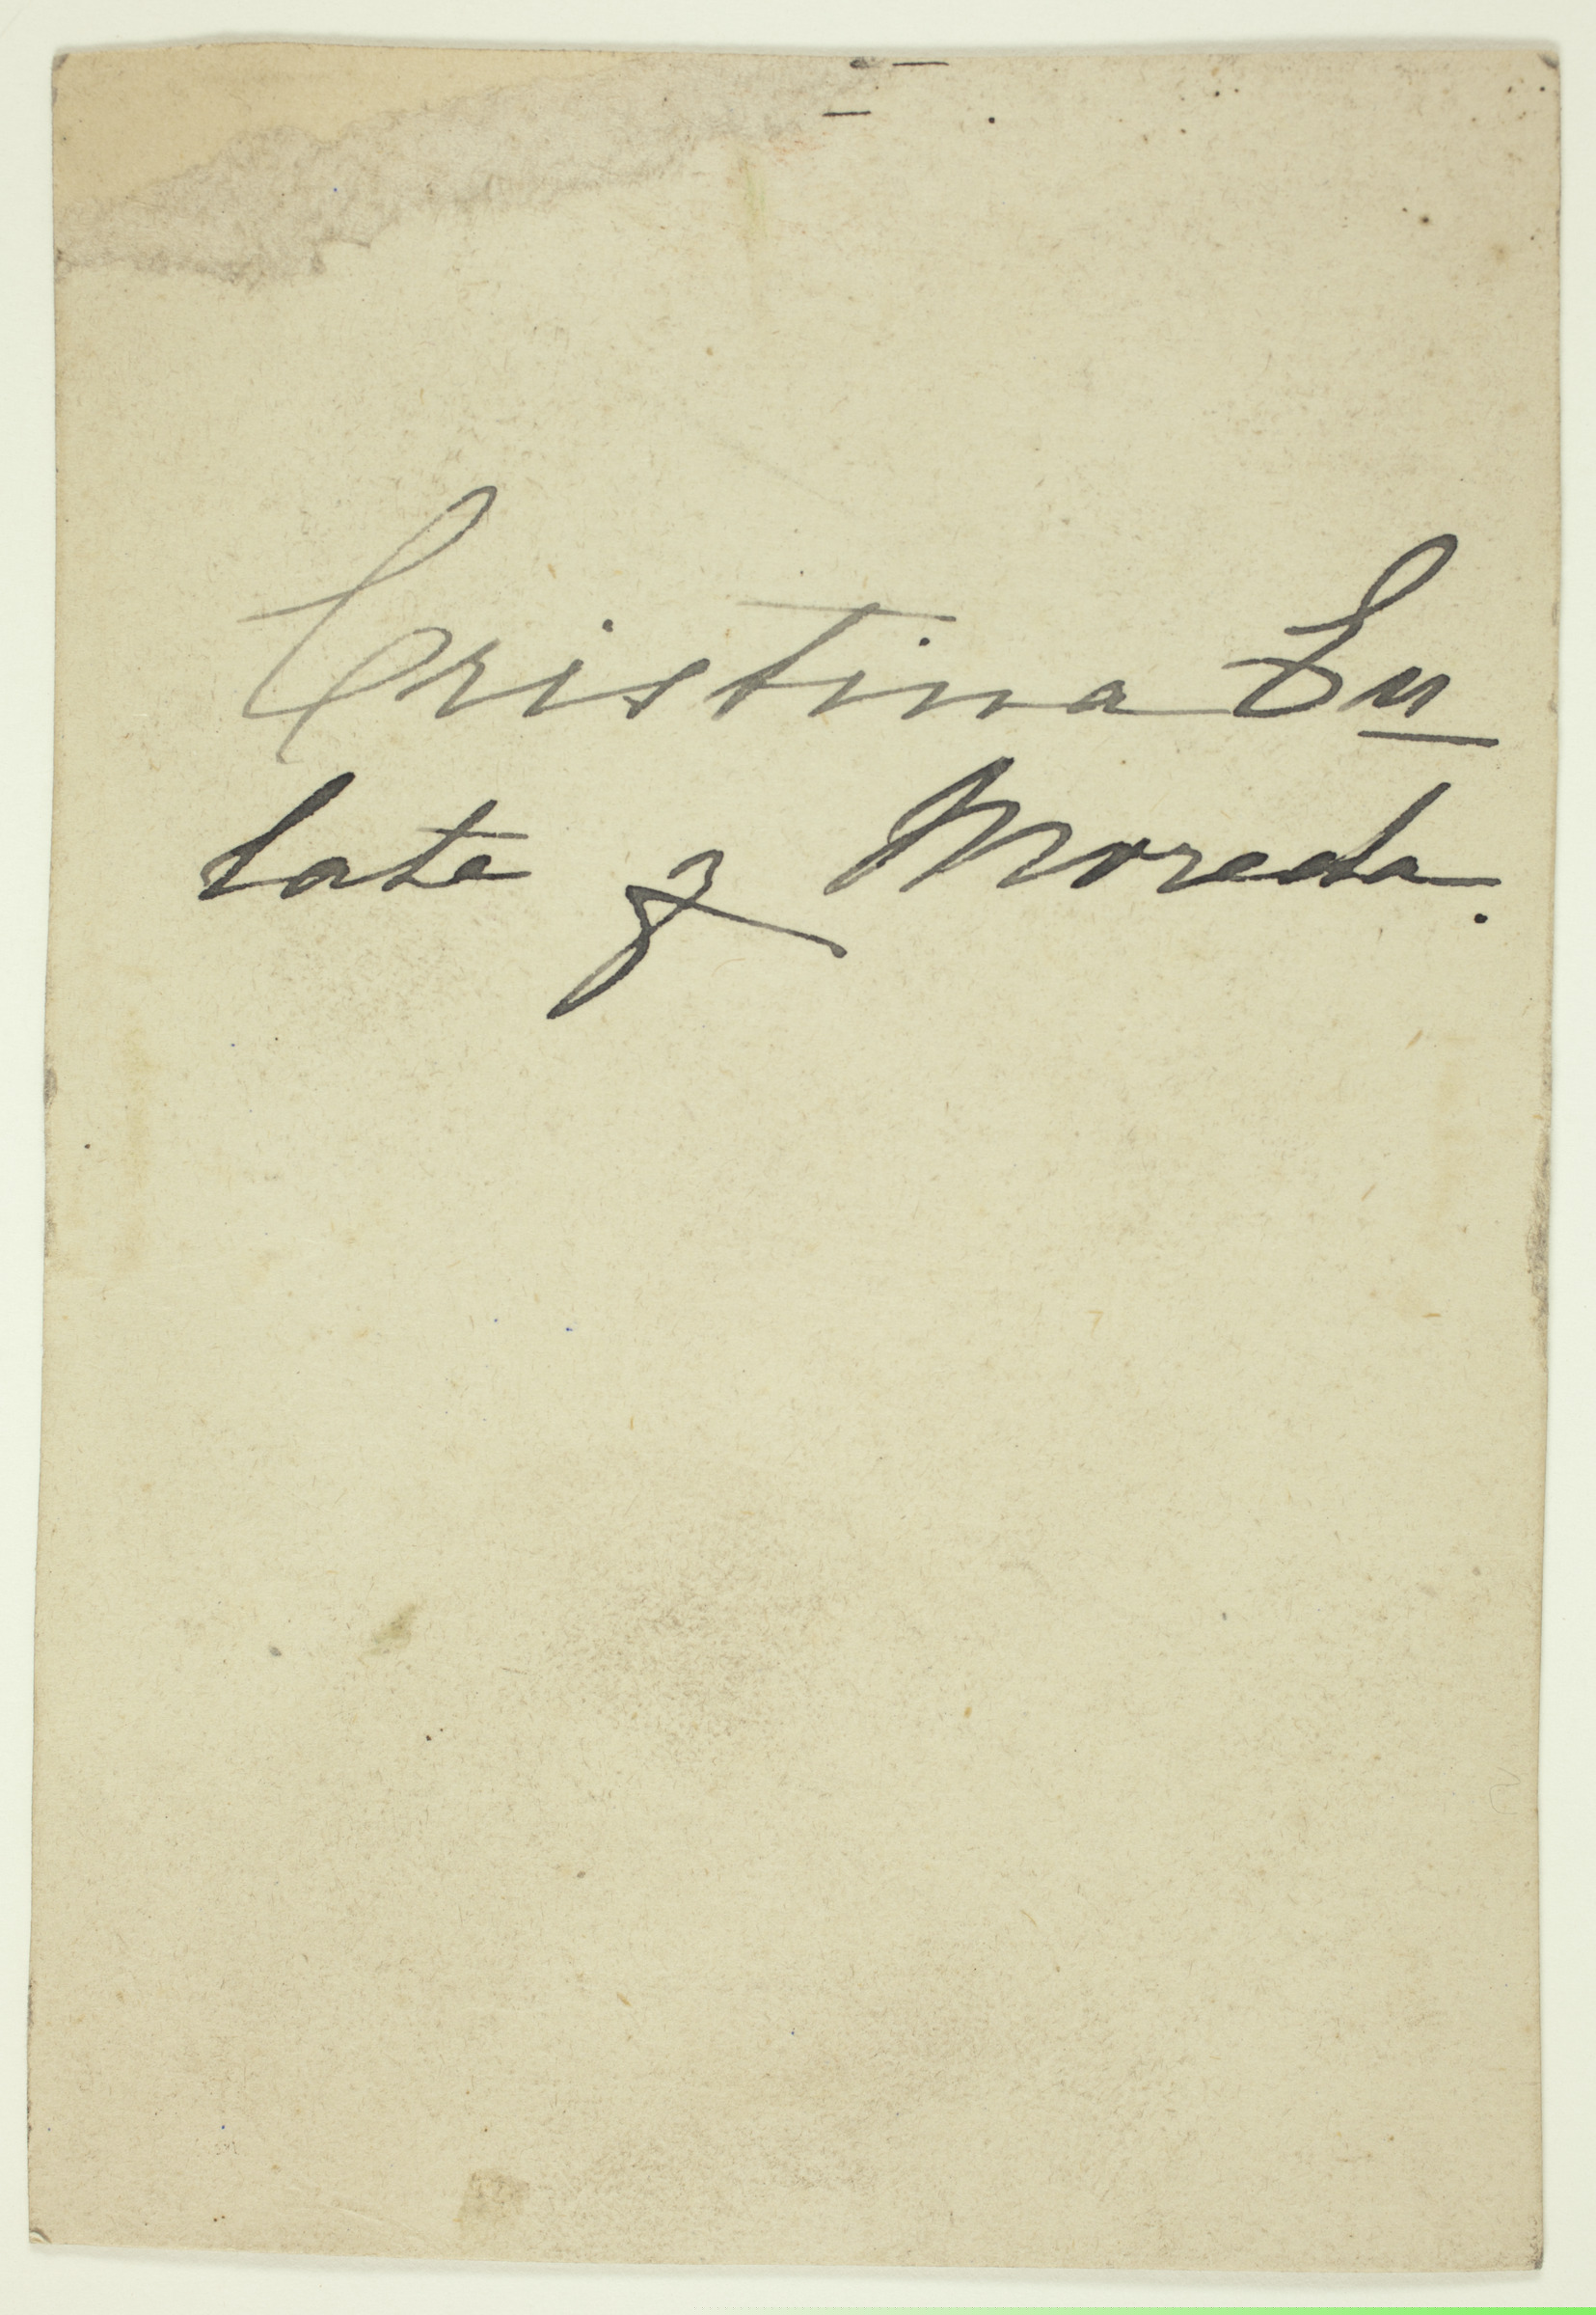 Cristina Eu
late y Moreda.